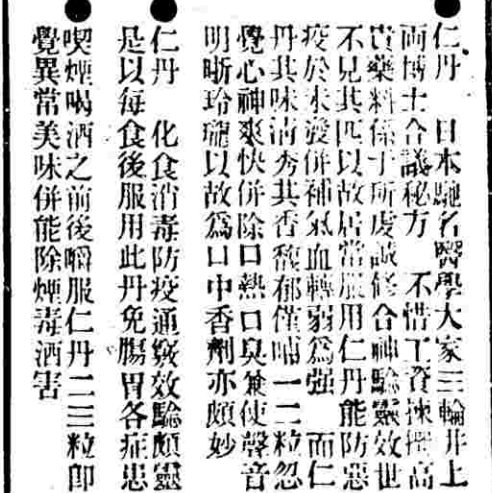 ●仁丹　日本馳名醫學大家三輪井上
兩博士合議秘方　不惜工資揀擇高
貴藥料係于所虔誠修合神驗靈效世
不見其匹以故居常服用仁丹能防惡
疫於未發併補氣血轉弱爲强　而仁
丹其味淸秀其香馥郁僅哺一二粒忽
覺心神爽快併除口熱口臭兼使聲音
明晰玲瓏以故爲口中香劑亦頗妙
●仁丹　化食消毒防疫通竅效驗頗靈
是以每食後服用此丹免腸胃各症患
●喫煙喝酒之前後嚼服仁丹二三粒卽
覺異常美味併能除煙毒酒害